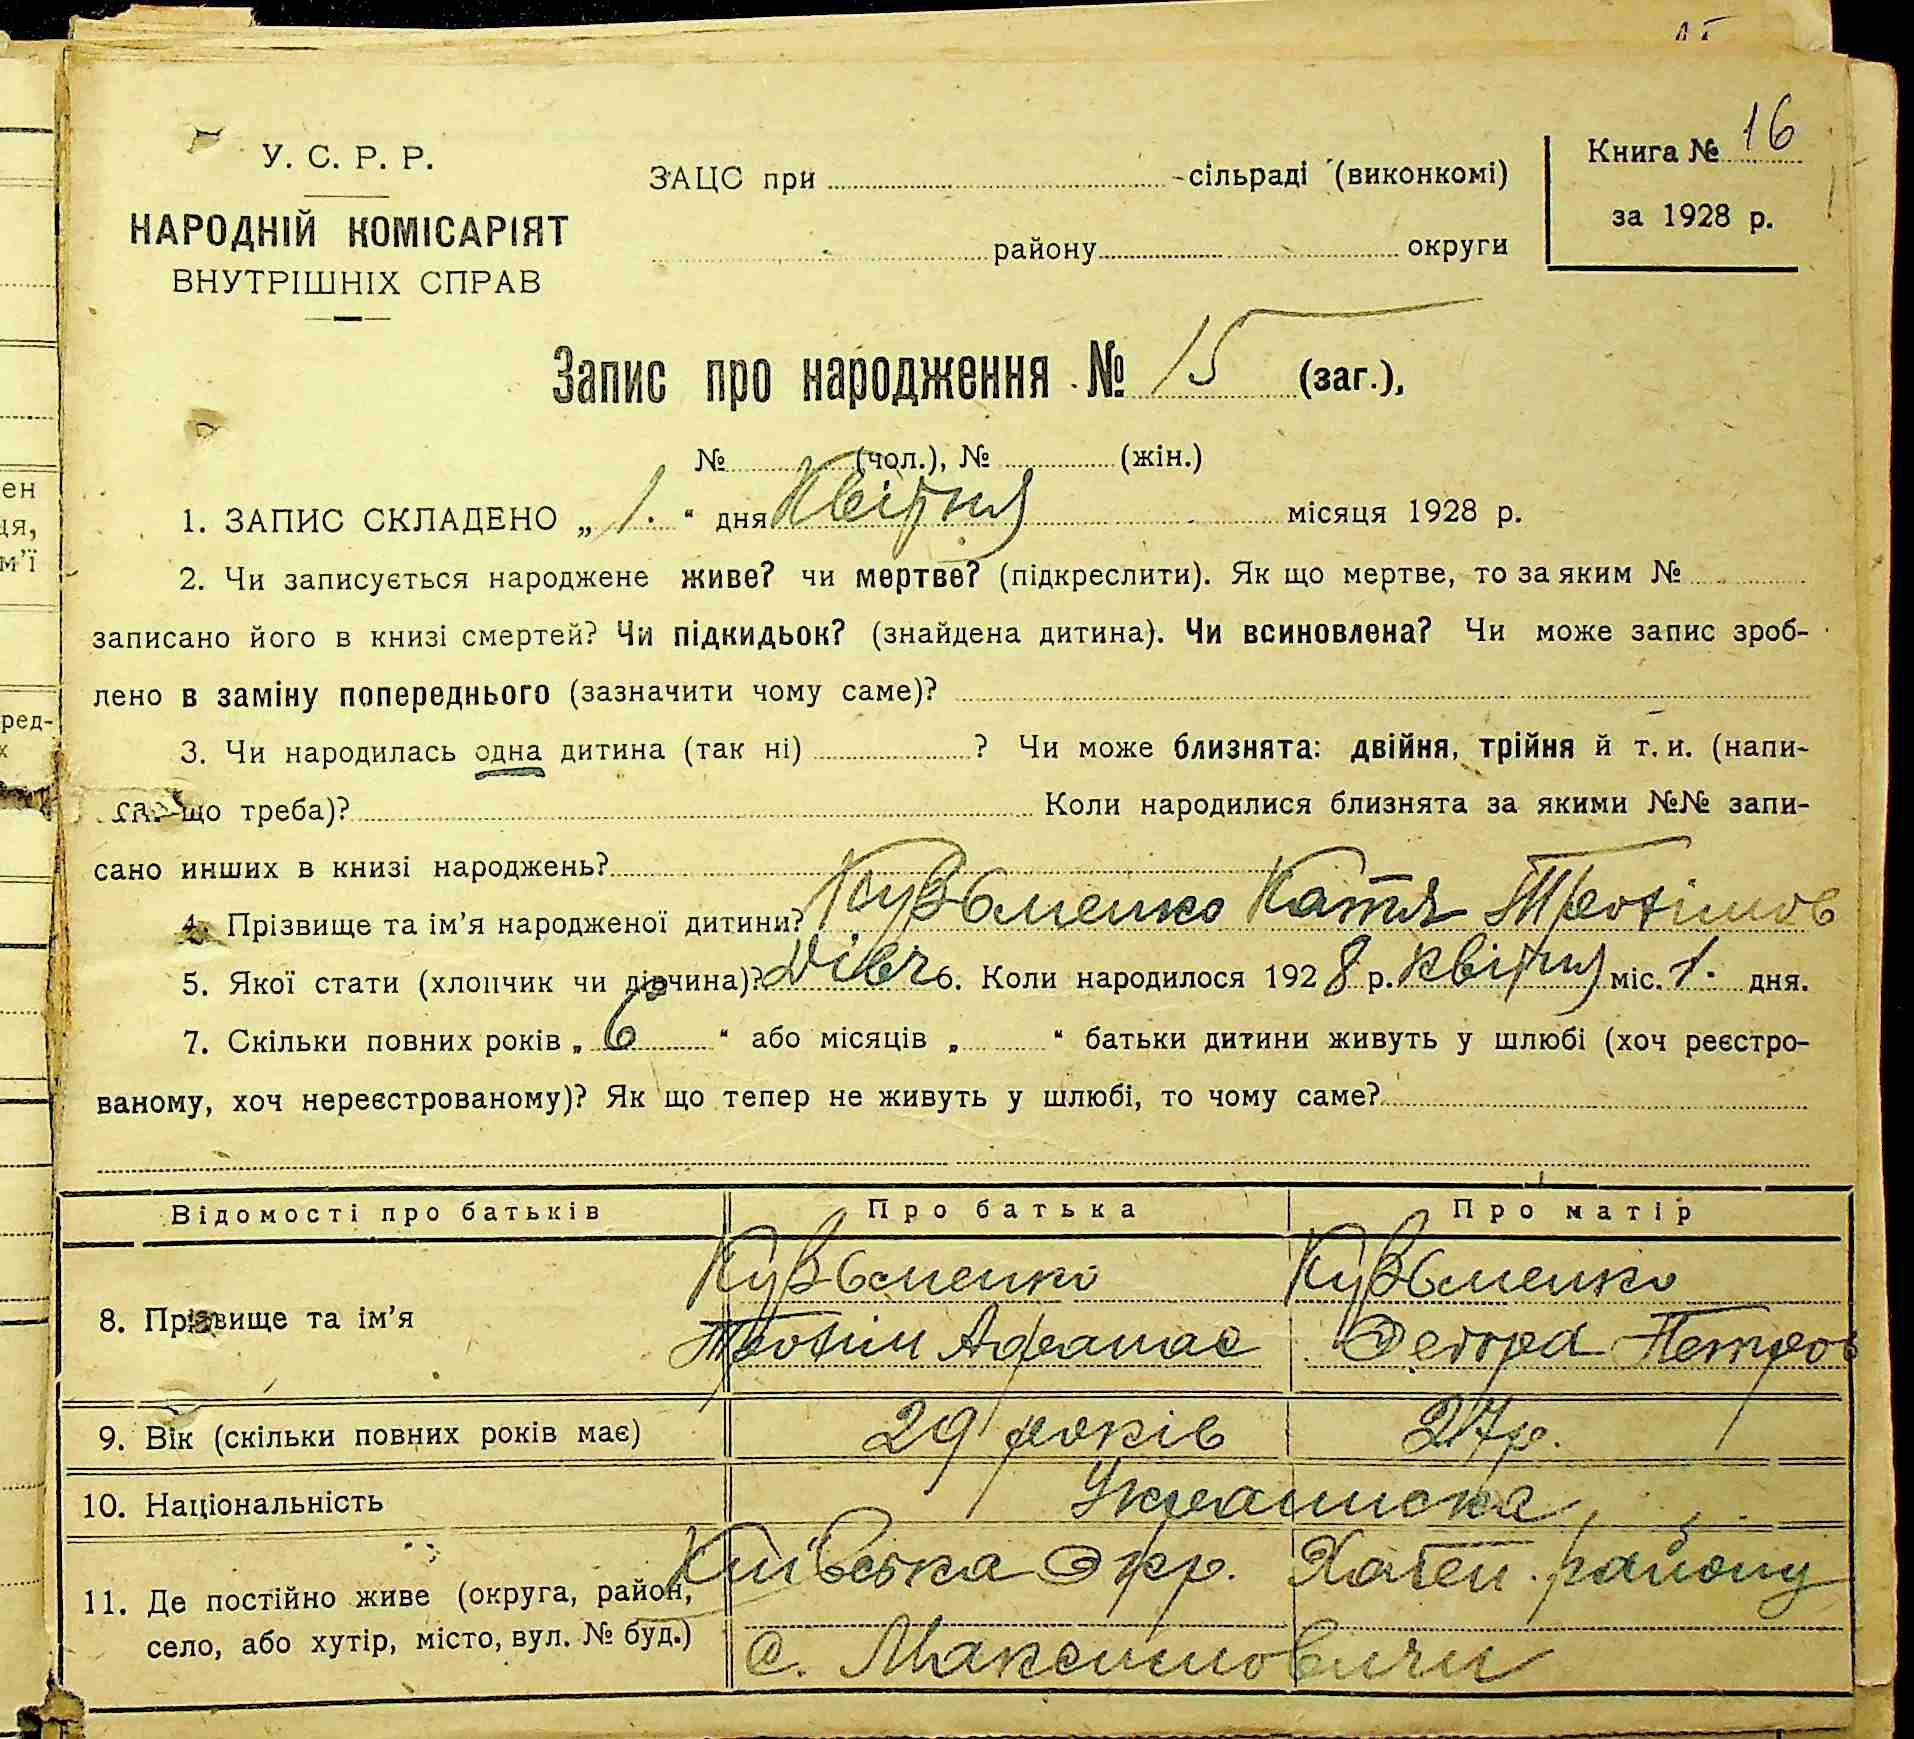 У. С. Р. Р.
НАРОДНІЙ КОМІСАРІЯТ
ВНУТРІШНІХ СПРАВ
ЗАЦС при сільраді (виконкомі)
району округи
Книга № 16
за 1928 р.
Запис про народження № 15 (заг.),
№ (чол.), № (жін.)
1. ЗАПИС СКЛАДЕНО „ 1. “ дня Квітня місяця 1928 р.
2. Чи записується народжене живе? чи мертве? (підкреслити). Як що мертве, то за яким №
записано його в книзі смертей? Чи підкидьок? (знайдена дитина). Чи всиновлена? Чи може запис зроб-
лено в заміну попереднього (зазначити чому саме)?
3. Чи народилась одна дитина (так ні) ? Чи може близнята: двійня, трійня й т. и. (напи-
що треба)? Коли народилися близнята за якими №№ запи-
сано инших в книзі народжень?
4. Прізвище та ім’я народженої дитини? Кузьменко Катя
5. Якої стати (хлопчик чи дівчина)? Дівч 6. Коли народилося 1928 р. Квітня міс. 1. дня.
7. Скільки повних років „ 6 “ або місяців „ “ батьки дитини живуть у шлюбі (хоч реєстро-
ваному, хоч нереєстрованому)? Як що тепер не живуть у шлюбі, то чому саме?
Відомості про батьків Про батька Про матір
8. Прізвище та ім’я Кузьменко Кузьменко
Афанас Петров
9. Вік (скільки повних років має) 29 років 27 р.
10. Національність
11. Де постійно живе (округа, район,
село, або хутір, місто, вул. № буд.)
Київська Окр. району
с. Максимовичи
ен
ред-